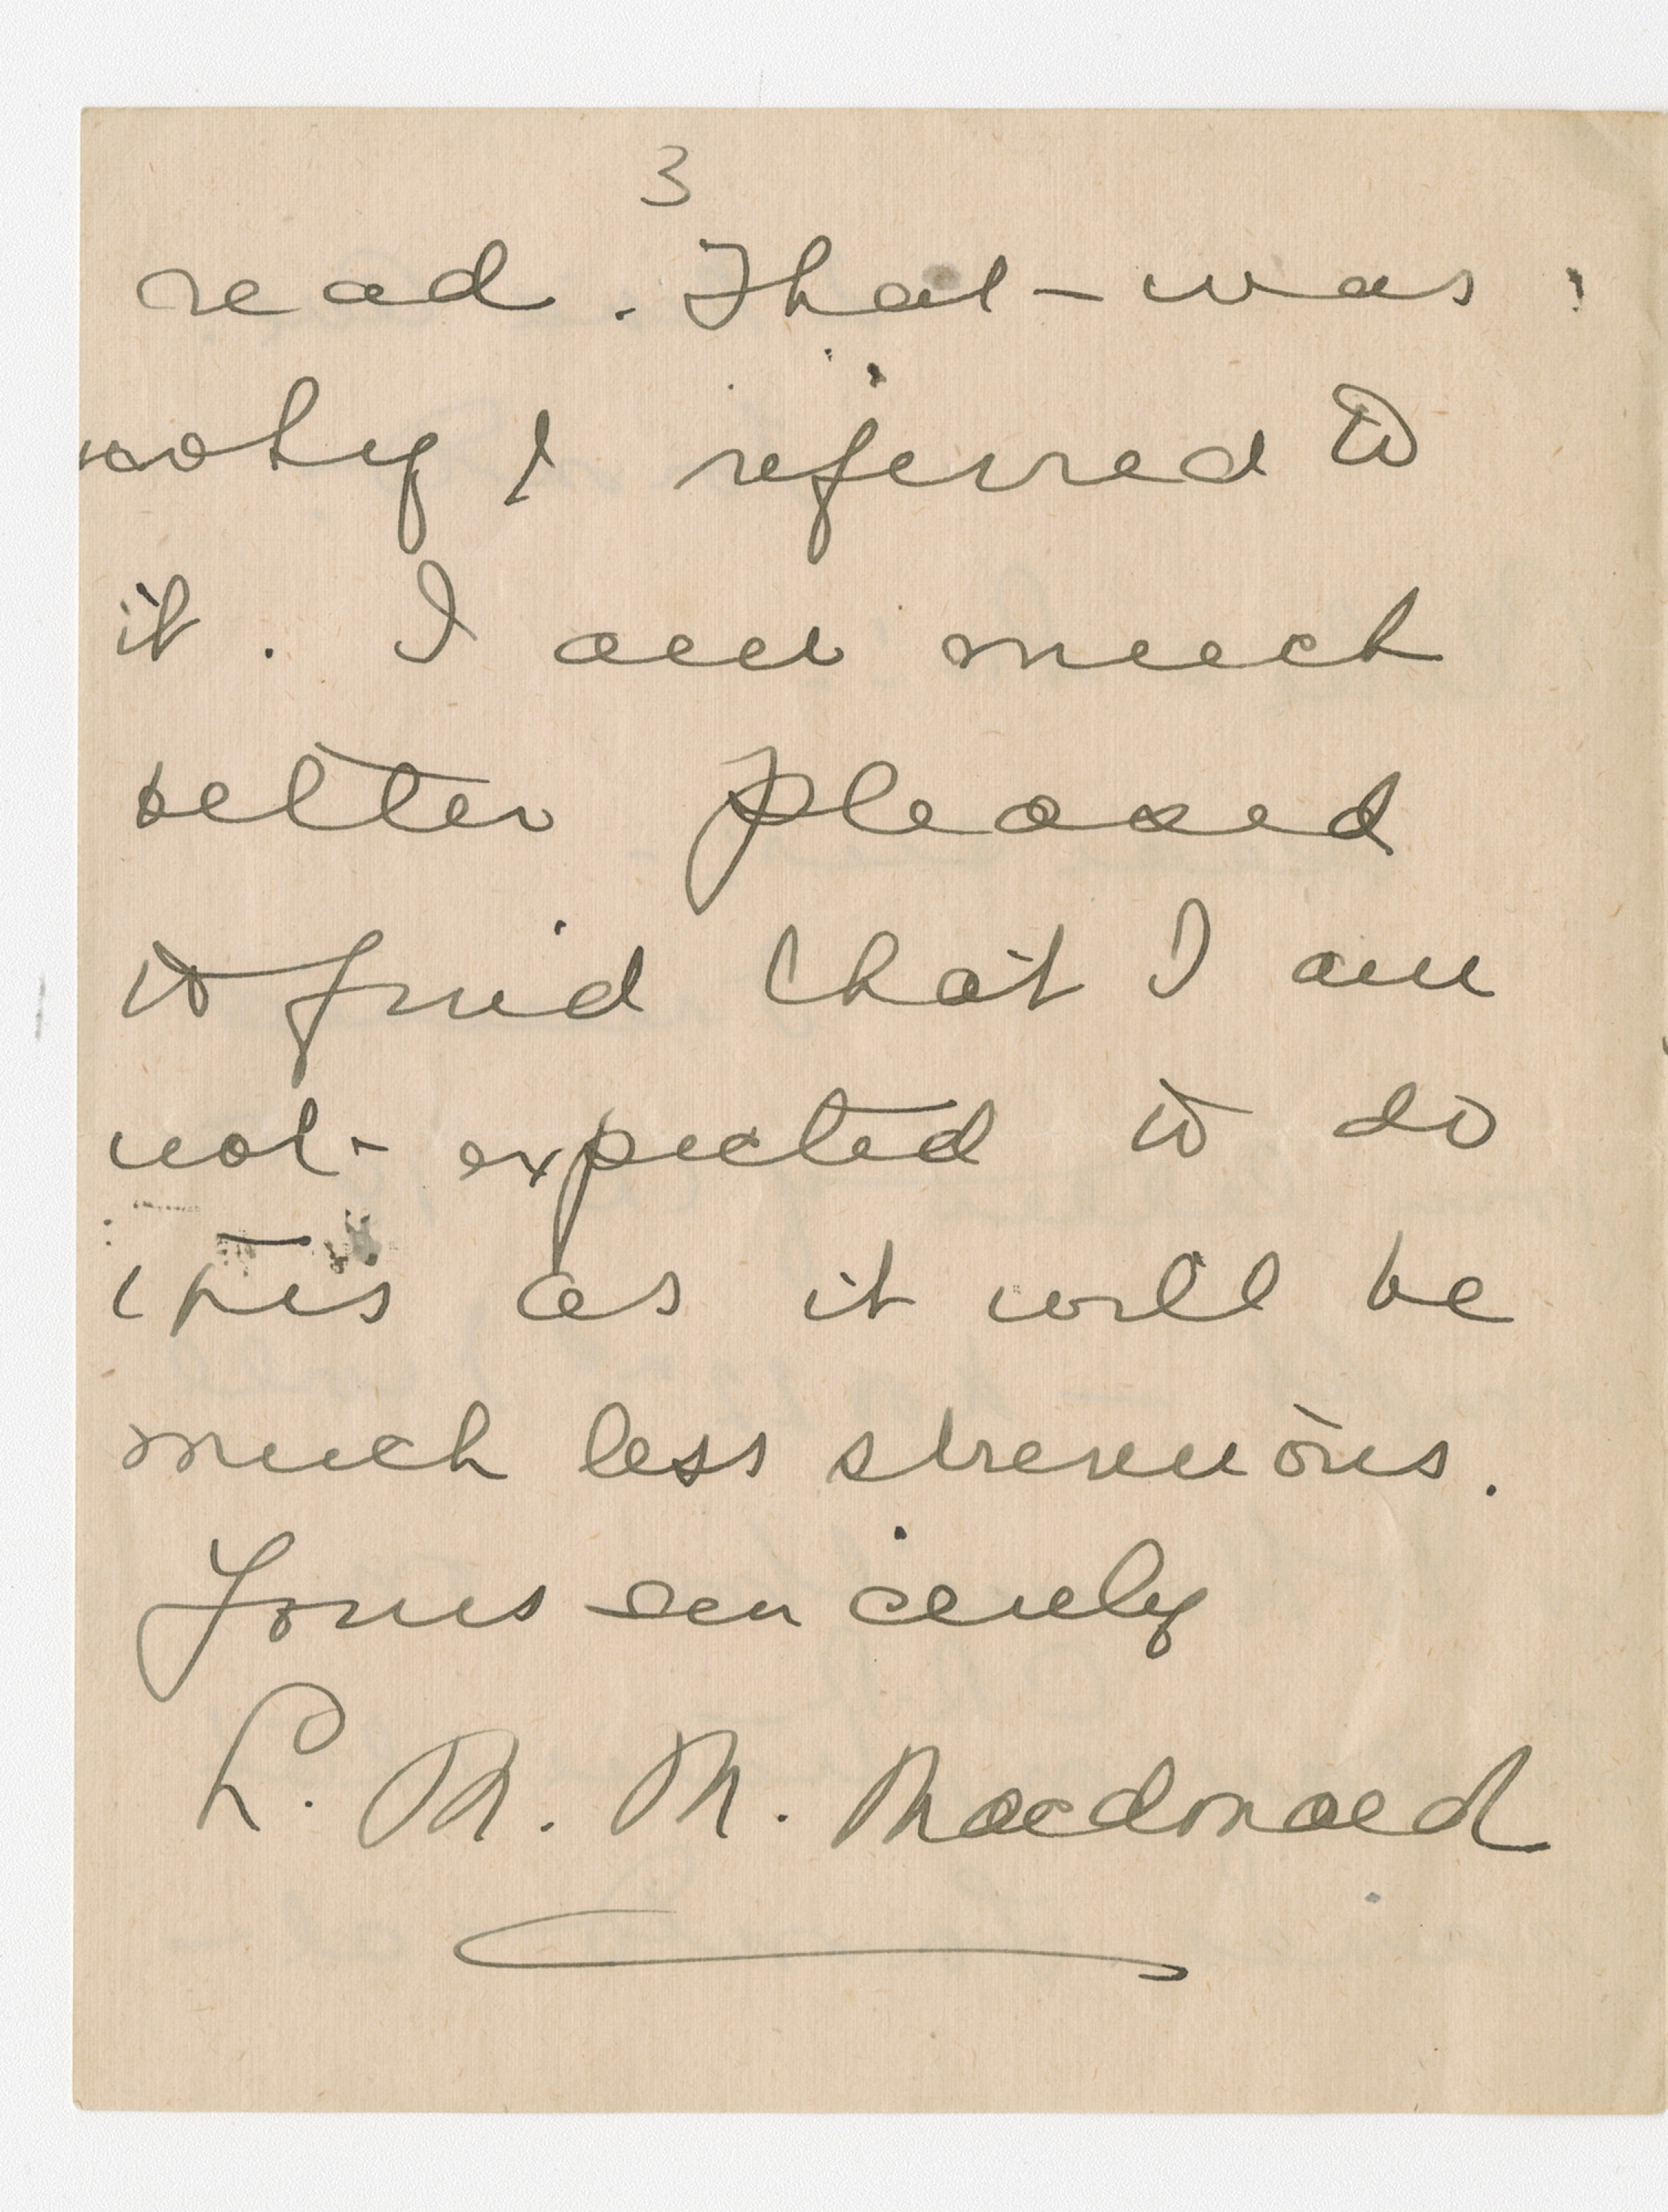 3
read. That was
why I referred to
it. I am much
better pleased
to find that I am
not expected to do
this as it will be
much less strenuous.
Yours sincerely
L. M. M. Macdonald